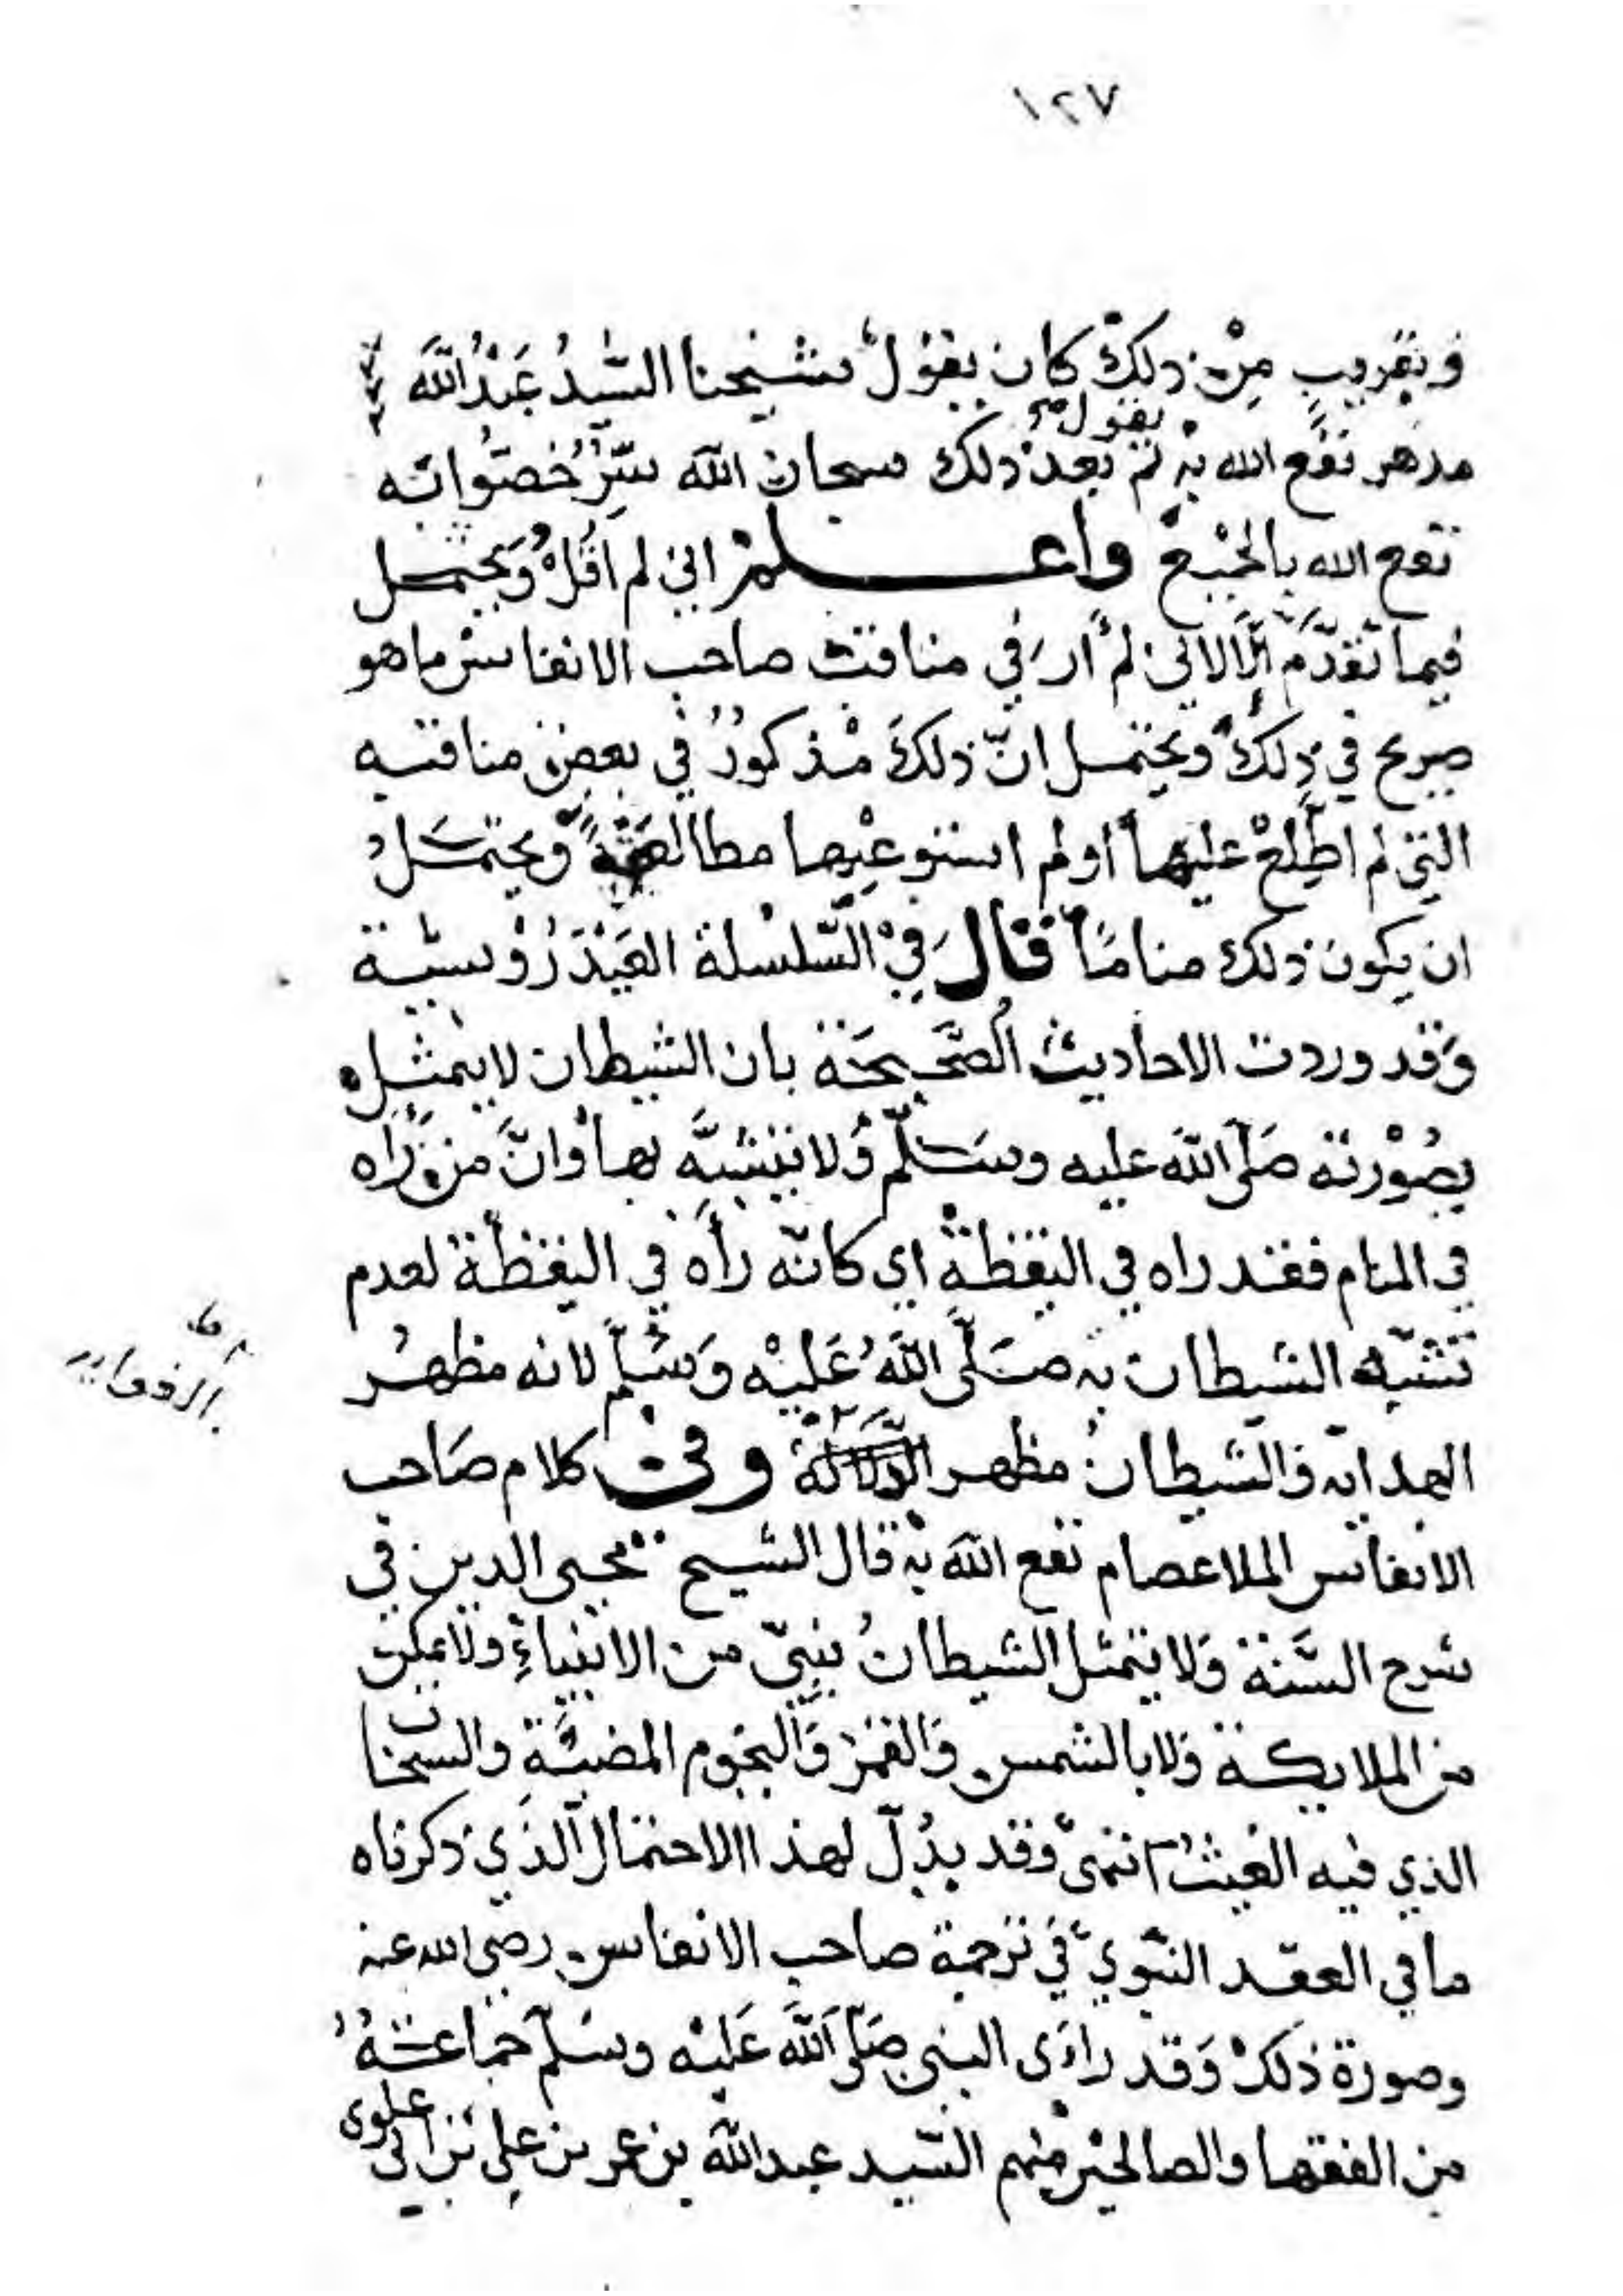 ١٢٧
وتقريب من ذلك كان يقول شيخنا السيد عبد الله
يقول
مدهر نفع الله به ثم بعد ذلك سبحان الله
نفع الله بالجميع واعلم اني لم اقل ويحتمل
فيما تقدم الا لاني لم أر في مناقب صاحب الانفاس ما هو
صريح في ذلك ويحتمل ان ذلك مذكور في بعض مناقبه
التي لم اطلع عليها أو لم استوعبها مطالعة ويحتمل
ان يكون ذلك مناما قال في السلسلة العيدروسية
وقد وردت الاحاديث الصحيحة بان الشيطان لا يتمثل
بصورته صلى الله عليه وسلم ولا يتشبه بها وان من رآه
في المنام فقد راه في اليقظة اي كانه رأه في اليقظة لعدم
تشبه الشيطان به صلى الله عليه وسلم لانه مظهر
الهدايه والشيطان مظهر وفي كلام صاحب
الانفاس الملا عصام نفع الله به قال الشيخ محيي الدين في
شرح السنة ولا يتمثل الشيطان بنبي من الانبياء ولا بملك
من الملايكة ولا بالشمس والقمر والنجوم المضيئة والسحاب
الذي فيه الغيث انتهى وقد يدل لهذا الاحتمال الذي ذكرناه
ما في العقد النبوي في ترجمة صاحب الانفاس رضي الله عنه
وصورة ذلك وقد راءى النبي صلى الله عليه وسلم جماعة
من الفقها والصالحين منهم السيد عبد الله بن عمر بن علي بن ابي علوى